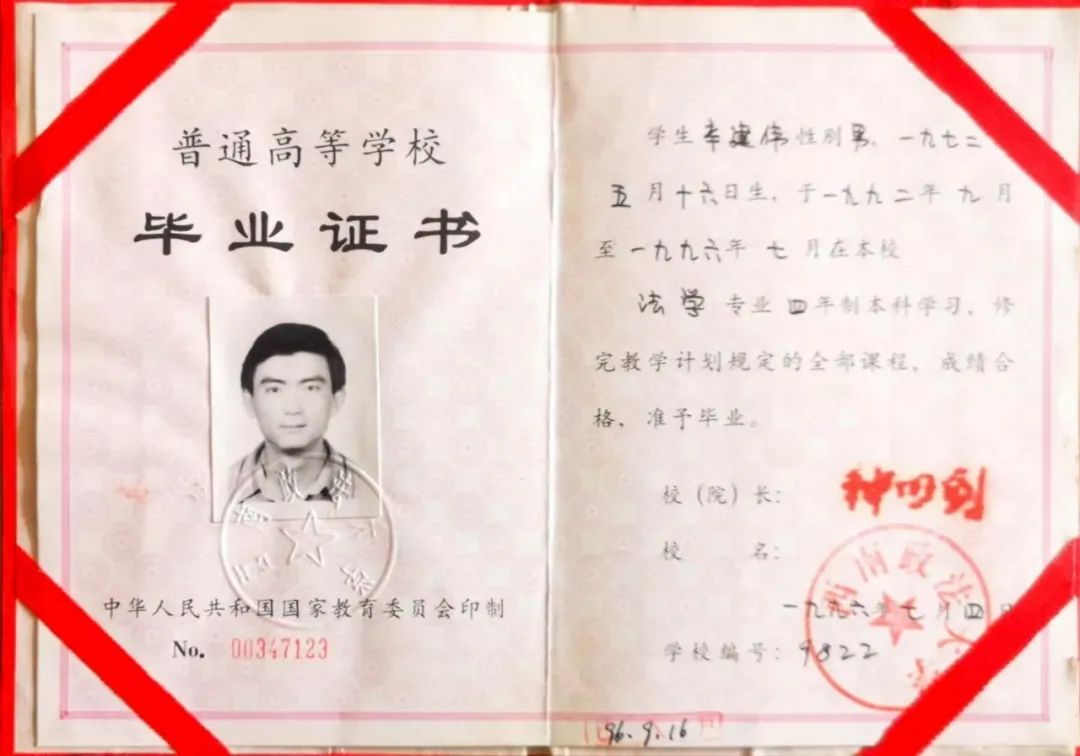 普通高等学校
毕业证书
中华人民共和国国家教育委员会印制
No. 00347123
学生 建伟 性别 男，一九七二
五月十六日生，于一九九二年九月
至一九九六年七月在本校
法学专业四年制本科学习，修
完教学计划规定的全部课程，成绩合
格，准予毕业。
校（院）长：
校 名：
西南政法大学
一九九六年七月四日
学校编号：9822
96.9.16